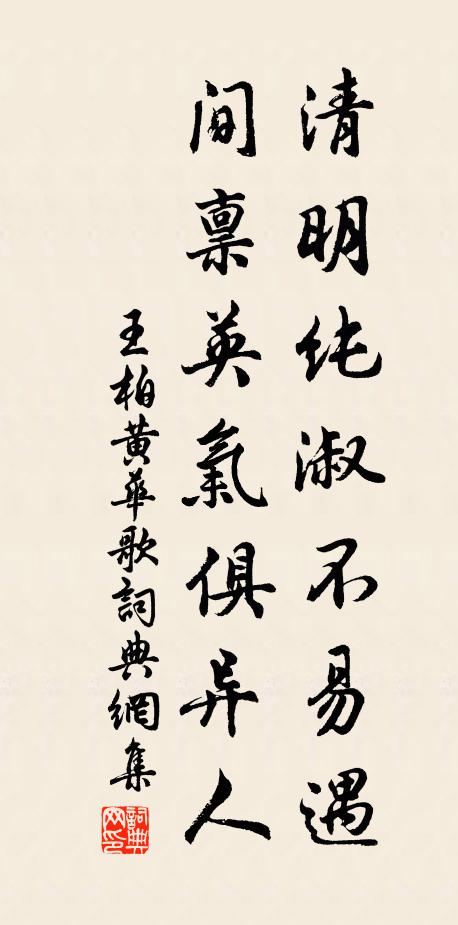 清明纯淑不易遇
间禀英氣俱异人
王柏黄華歌詞典網集
詞典网印